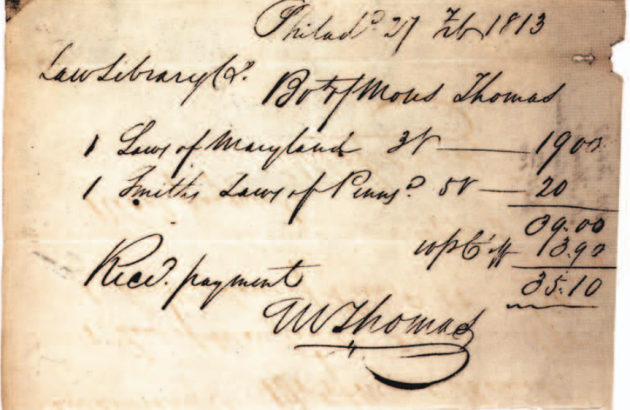 Philad.ᵃ 27 Feb 1813
Law Library Co.
Bot of Moses Thomas
1 Laws of Maryland 3V — 19 00
1 Smiths Laws of Pennsᵃ 5V — 20
39.00
10 pCt off 3.90
35.10
Recd. payment
M Thomas